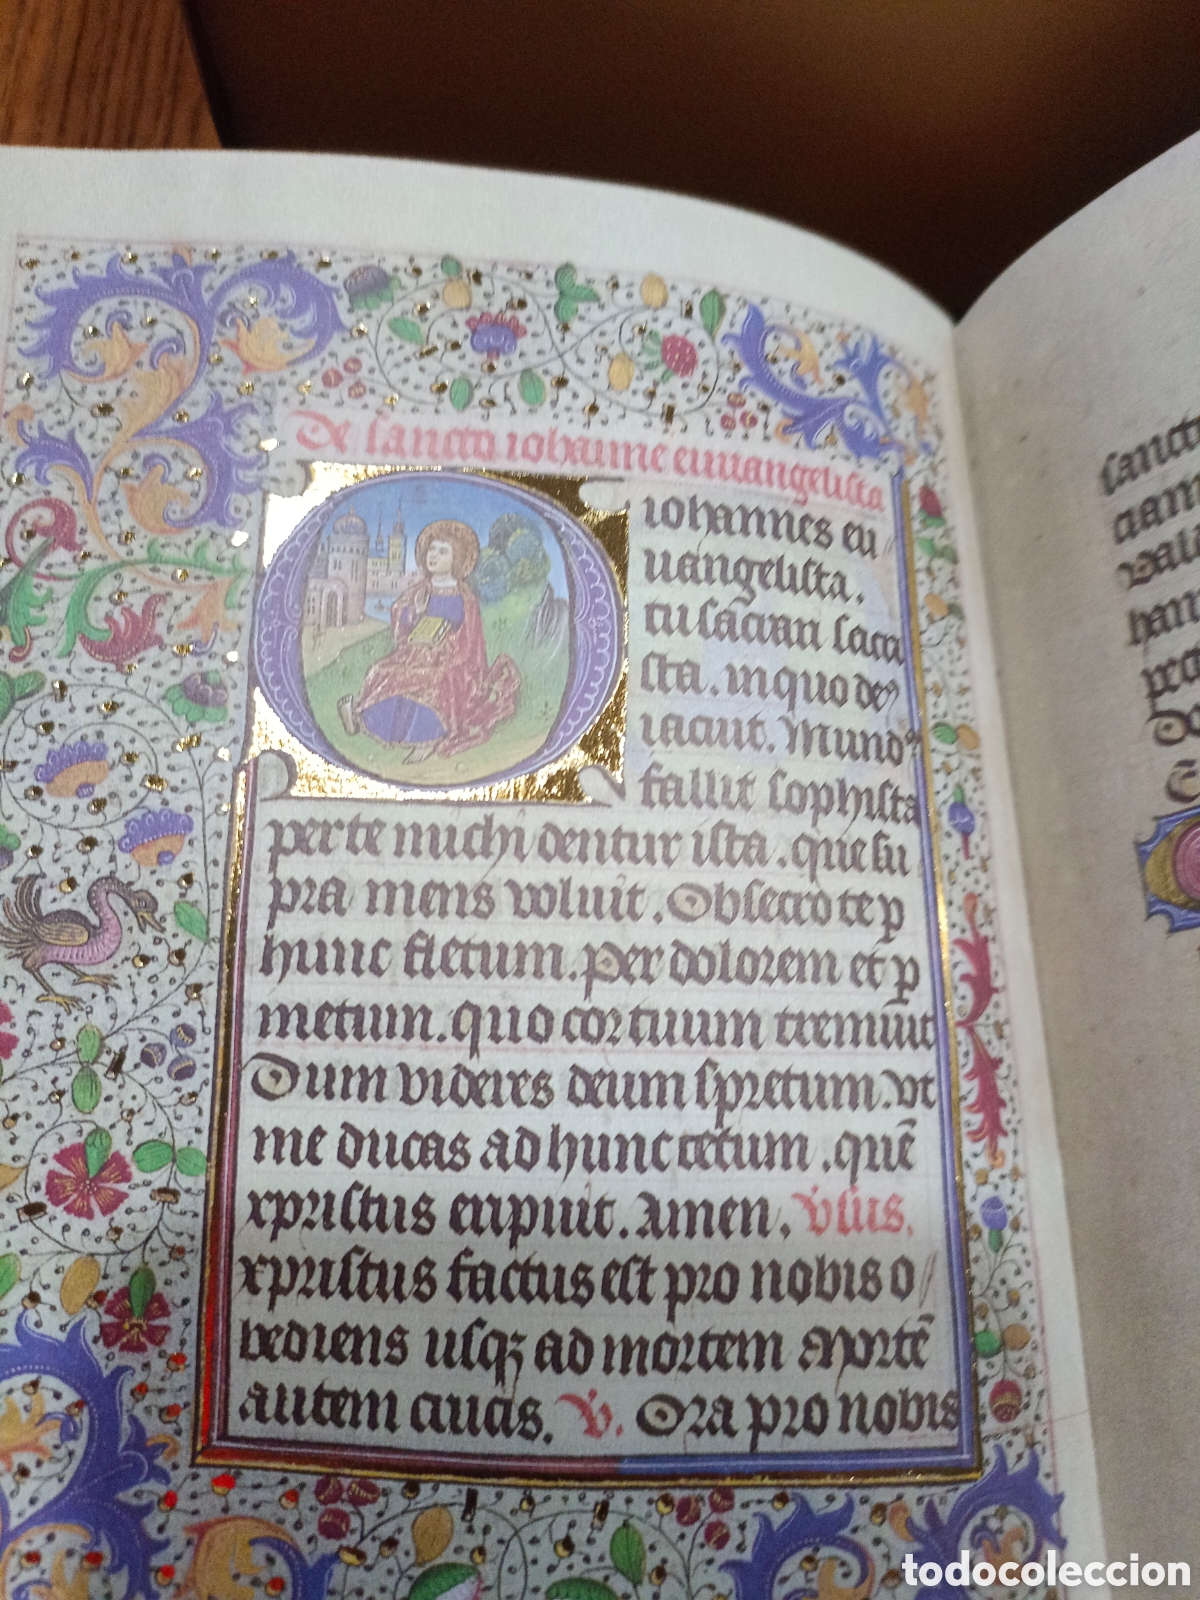 De sancto iohanne euuangelista
O iohannes eu//
uangelista.
tu sacrari sacri
sta. in quo deꝰ
iacuit. Mundꝰ
fallit sophista
per te michi dentur ista. que su
pra mens voluit. Obsecro te ꝑ
hunc fletum. per dolorem et ꝑ
metum. quo cor tuum tremuit
Dum videres deum spretum. vt
me ducas ad hunc cetum. quē
xpristus eripuit. Amen. v̓sus.
xpristus factus est pro nobis o//
bediens usqꝫ ad mortem Mortē
autem crucis. V. Ora pro nobis
sanct
ham
todocoleccion